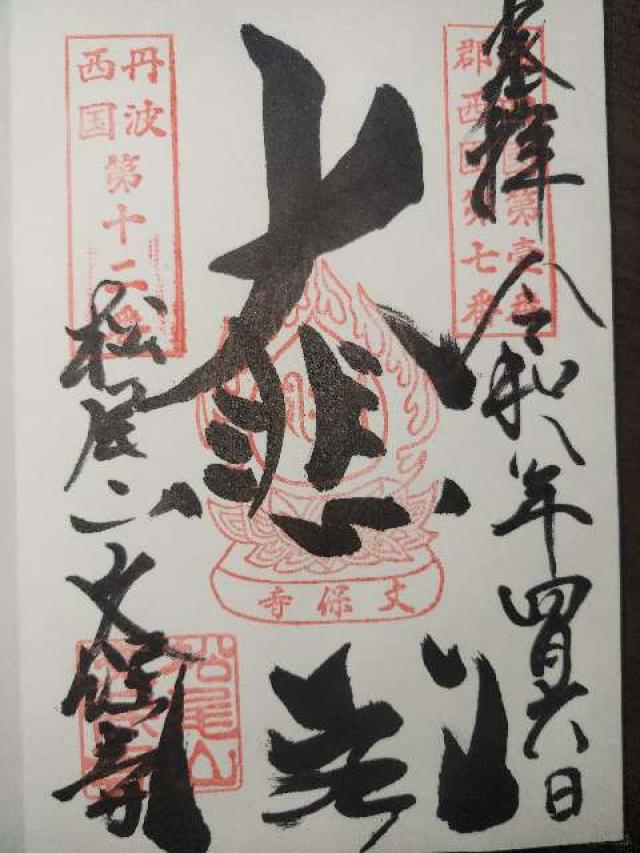 奉拝
令和八年四月六日
郡西国第七番
第壱番
大悲
文保寺
丹波
西国
第十二番
松尾山
文保寺
松尾山